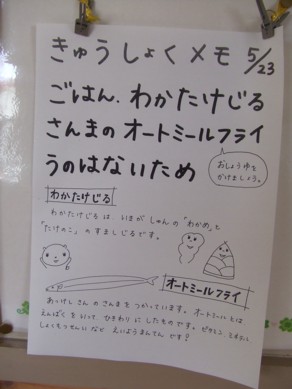 きゅうしょくメモ 5/23
ごはん. わかたけじる
さんまのオートミールフライ
うのはないため
おしょうゆを
かけましょう。
わかたけじる
わかたけじる は、いまが しゅんの「わかめ」と
「たけのこ」の すましじるです。
オートミールフライ
さんまを つかっています。オートミールとは
えんばくを ひきわりにしたものです。ビタミン
しょくもつせんい など えいようまんてん です？